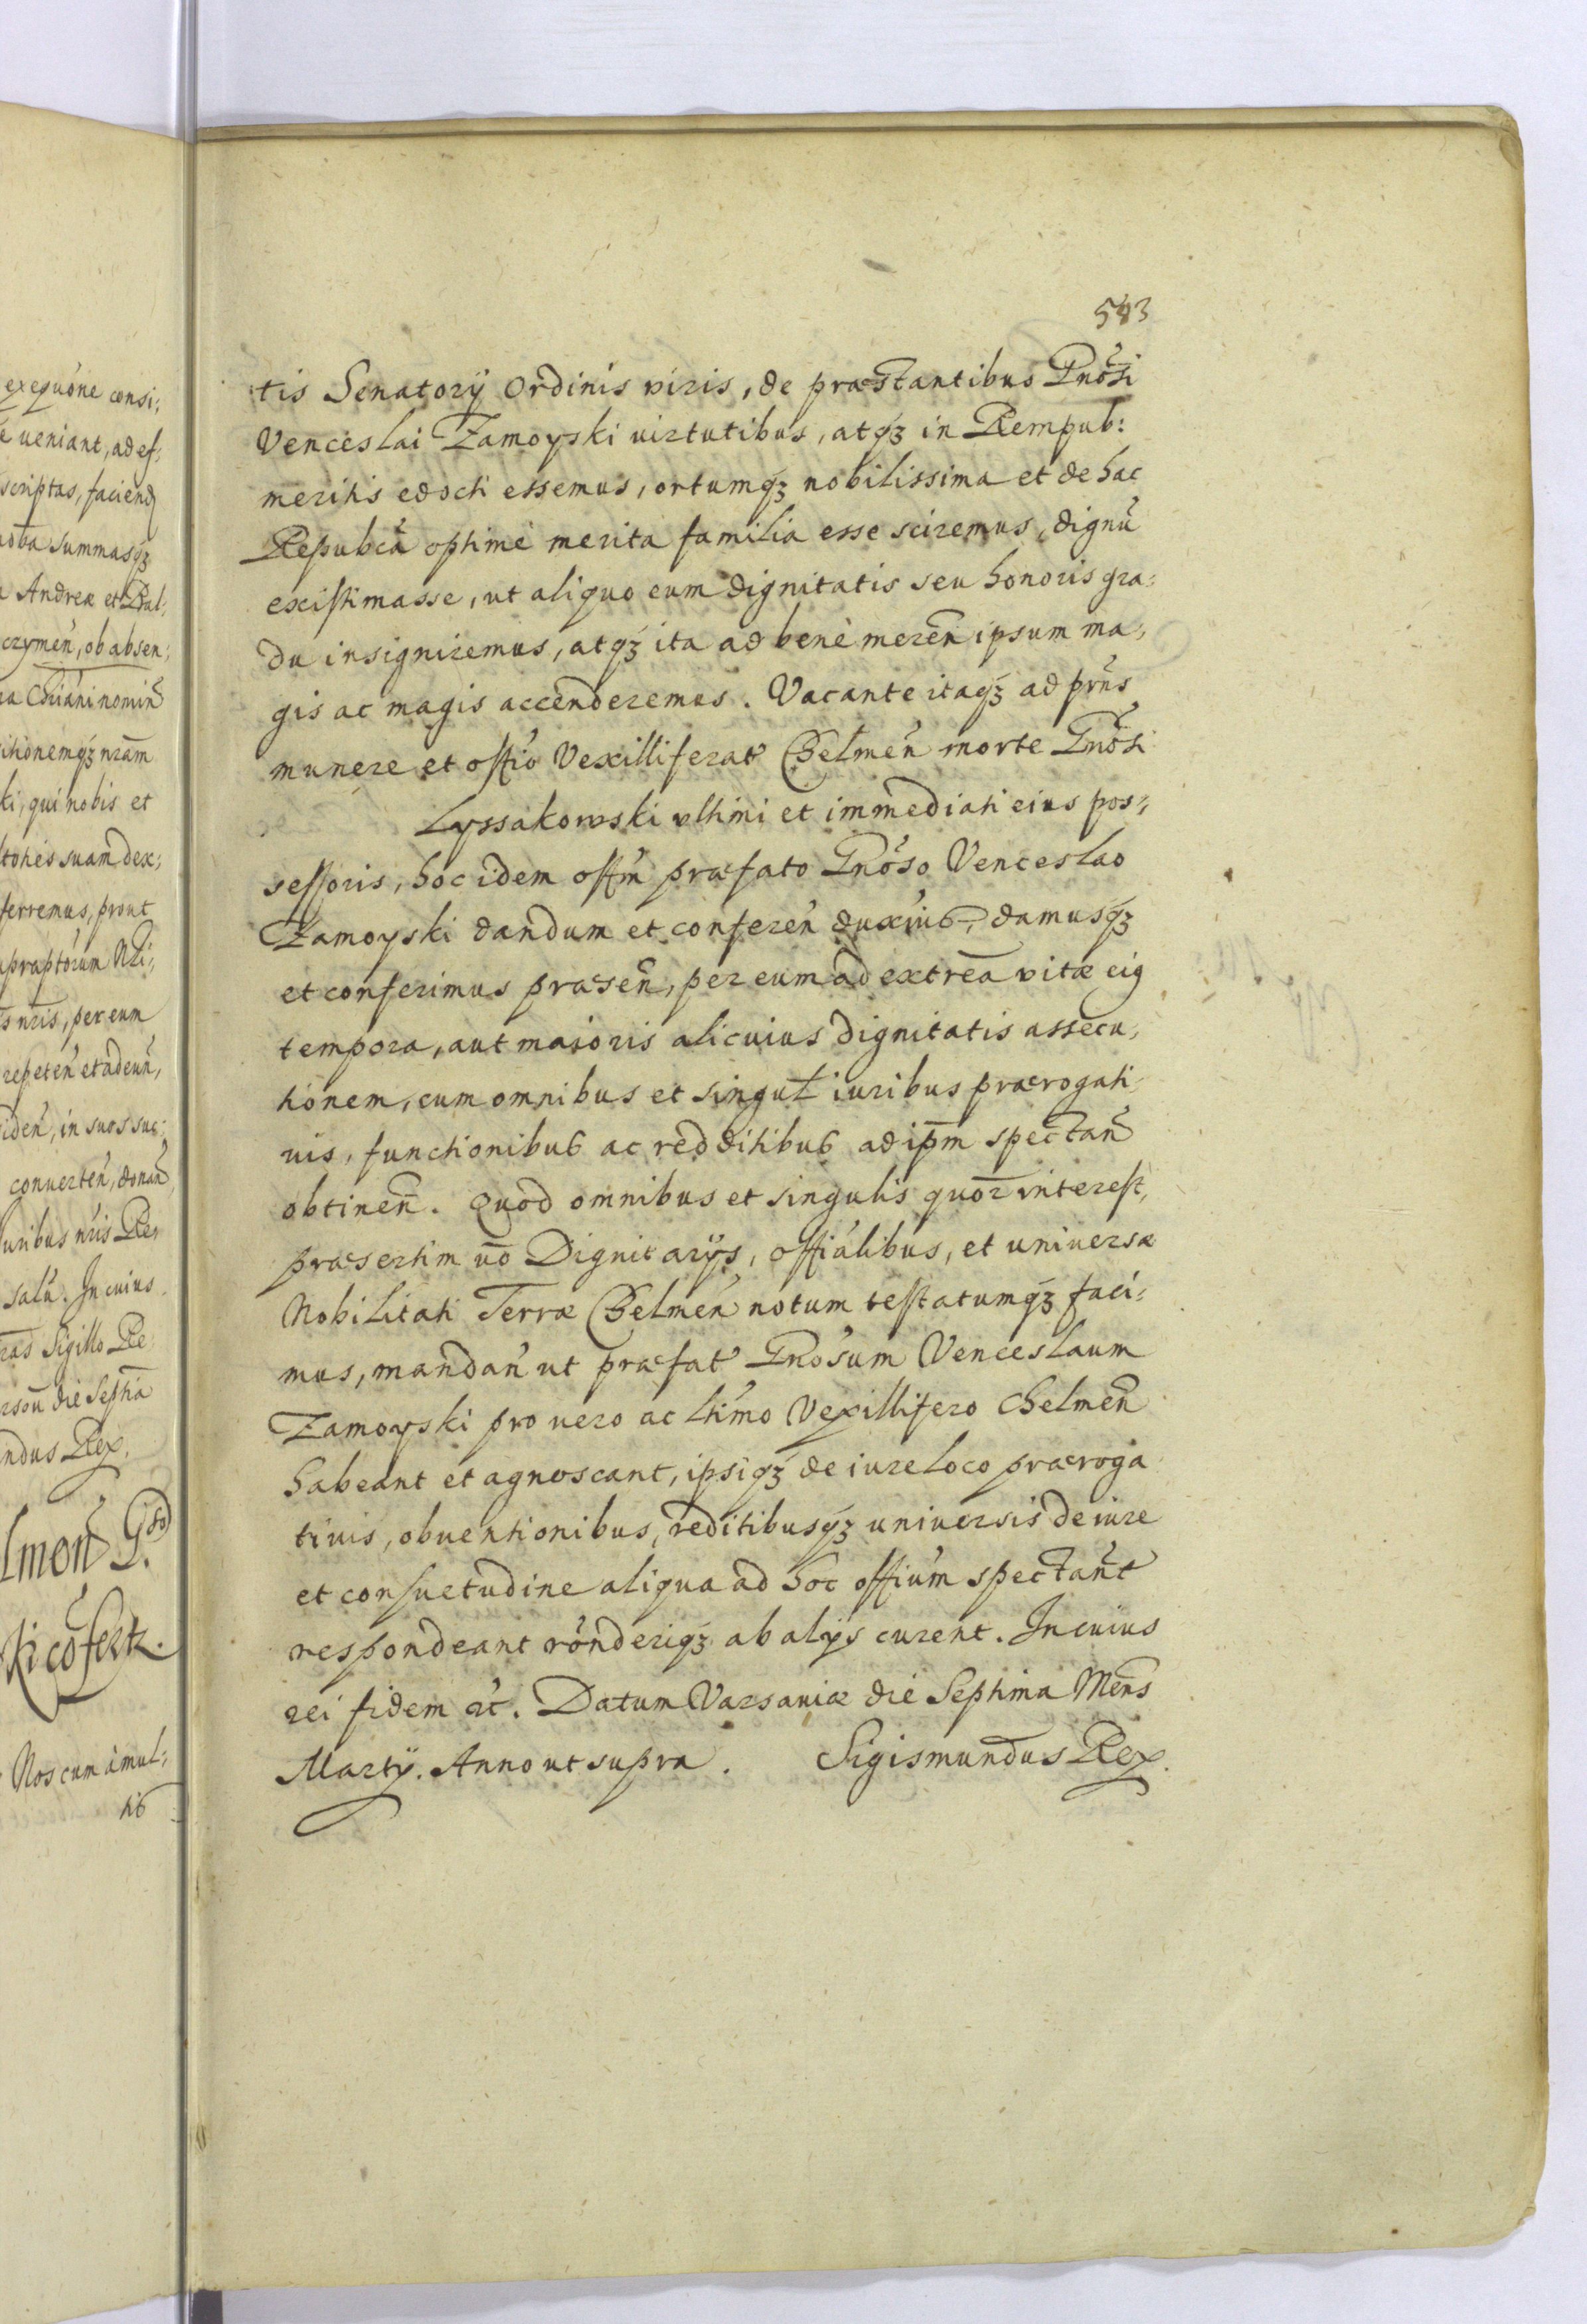 exequóne consi;
ueniant, ad ef;
scriptas, faciend
summasqȝ
Andreæ et Bal;
czymen̄, ob absen;
Chiáni nomin̄
itionemqȝ nr̄am
ki, qui nobis et
suam dex;
ferremus, prout
s nr̄is, per eum
repeten̄ et adeun̄,
iden̄, in suos suc;
conuerten̄, donan̄
uribus nr̄is Re;
salū. In cuius
Sigillo Re
die Septīa
ndus Rex.
Nos cum à mul;
tis
583
tis Senatorÿ Ordinis viris, de præstantibus Gnōsi
Venceslai Zamoyski uirtutibus, atqȝ in Rempub:
meritis edocti essemus, ortumqȝ nobilissima et de hac
Repub̄ca optimè merita familia esse sciremus, dignū
existimasse, ut aliquo eum dignitatis seu honoris gra;
du insigniremus, atqȝ ita ad benè meren̄ ipsum ma;
gis ac magis accenderemus. Vacante itaqȝ ad prn̄s
munere et offio Vexilliferat Chelmen̄ morte Gnōsi
Lyssakowski vltimi et immediati eius pos;
sessoris, hoc idem offm̄ præfato Gnōso Venceslao
Zamoyski dandum et conferen̄ duxim9, damusqȝ
et conferimus præsen̄, per eum ad extrēa vitæ ei9
tempora, aut maioris alicuius dignitatis assecu;
tionem, cum omnibus et singul iuribus prærogati
uis, functionibus ac redditibus ad ip̄m spectan̄
obtinen̄. Quod omnibus et singulis quor interest,
præsertim uō Dignitarÿs, offiálibus, et uniuersæ
Nobilitati Terræ Chelmen̄ notum testatumqȝ faci;
mus, mandan̄ ut præfat Gnōsum Venceslaum
Zamoyski pro uero ac ltimo Vexillifero Chelmen̄
habeant et agnoscant, ipsiqȝ de iure loco præroga
tiuis, obuentionibus, reditibusqȝ uniuersis de iure
et consuetudine aliqua ad hoc offium spectan̄t
respondeant rōnderiqȝ ab alÿs curent. In cuius
rei fidem etc. Datum Varsauiæ die Septima Mens̄
Martÿ. Anno ut supra. Sigismundus Rex.